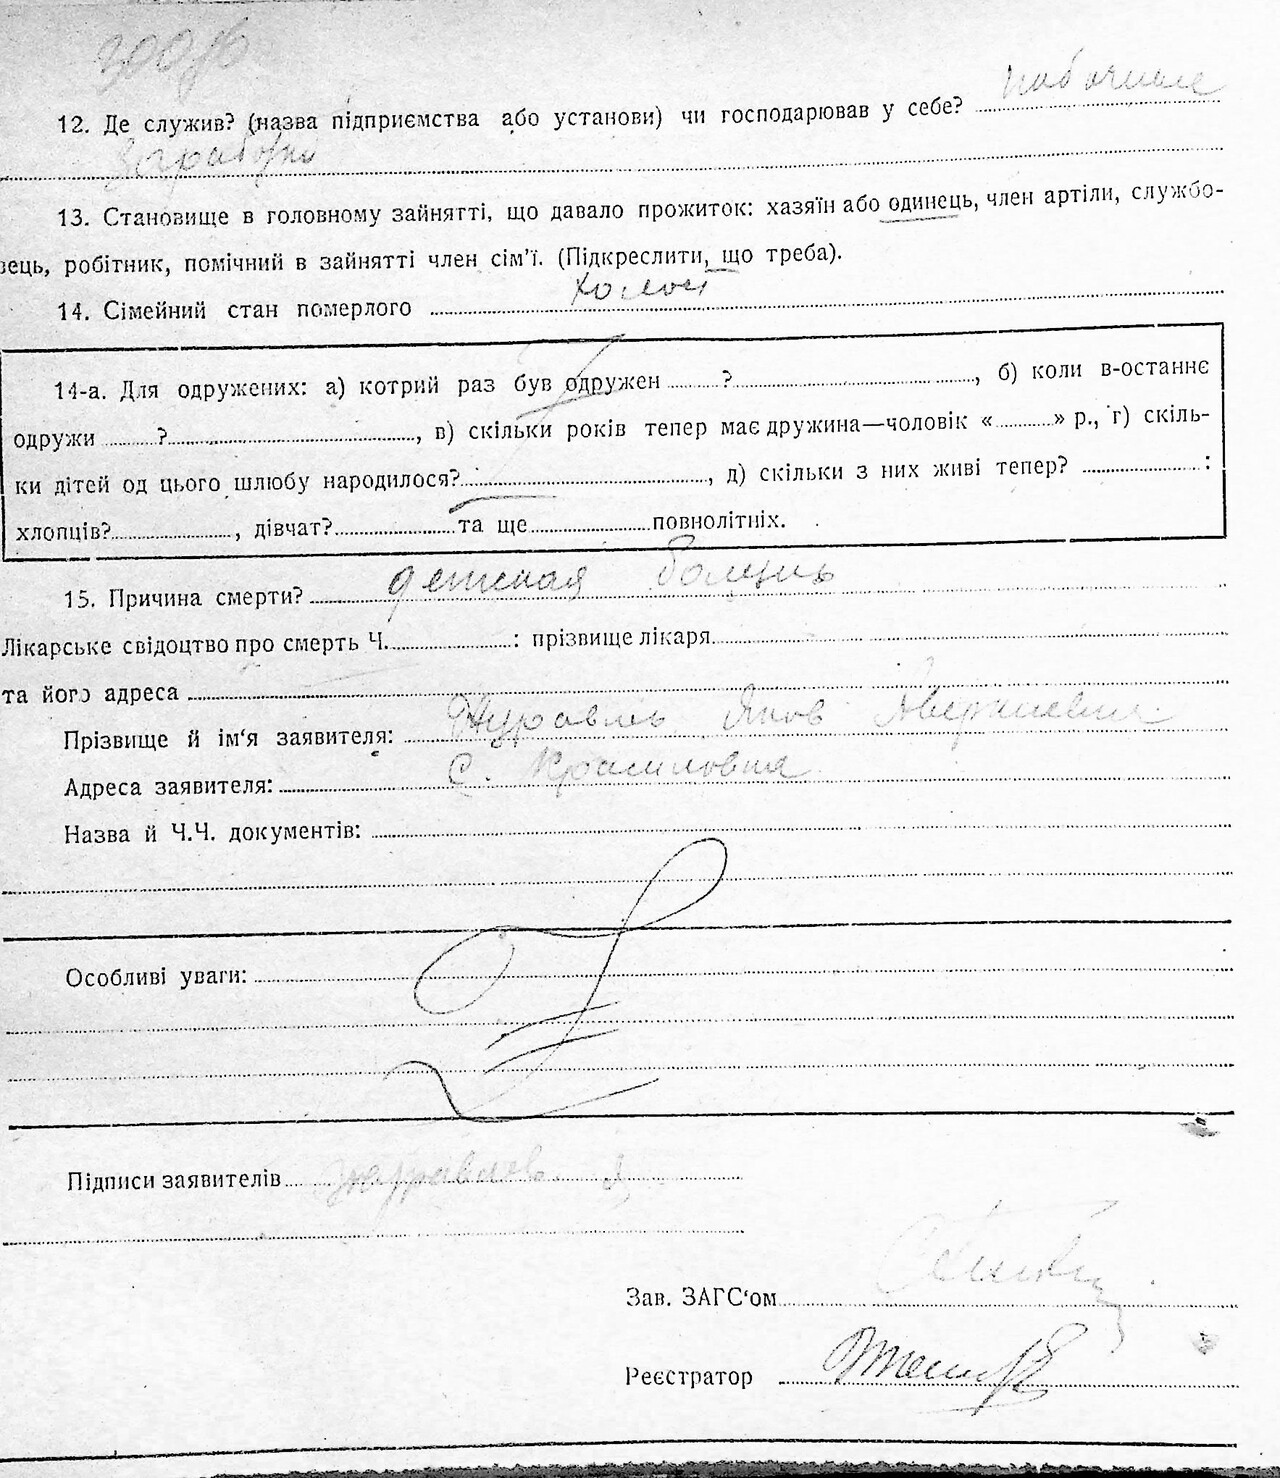 12. Де служив? (назва підприємства або установи) чи господарював у себе? побочные
Заработки
13. Становище в головному зайнятті, що давало прожиток: хазяїн або одинець, член артіли, службо-
вець, робітник, помічний в зайнятті член сім'ї. (Підкреслити, що треба).
14. Сімейний стан померлого холост
14-а. Для одружених: а) котрий раз був одружен ?, б) коли в-останнє
одружи ?, в) скільки років тепер має дружина—чоловік « » р., г) скіль-
ки дітей од цього шлюбу народилося?, д) скільки з них живі тепер? :
хлопців?, дівчат? та ще повнолітніх.
15. Причина смерти? детская болезнь
Лікарське свідоцтво про смерть Ч. : прізвище лікаря
та його адреса
Прізвище й ім'я заявителя: Журавль Яков Аверкиевич
Адреса заявителя: С. Красиловка
Назва й Ч.Ч. документів:
Особливі уваги:
Підписи заявителів
Зав. ЗАГС'ом
Реєстратор